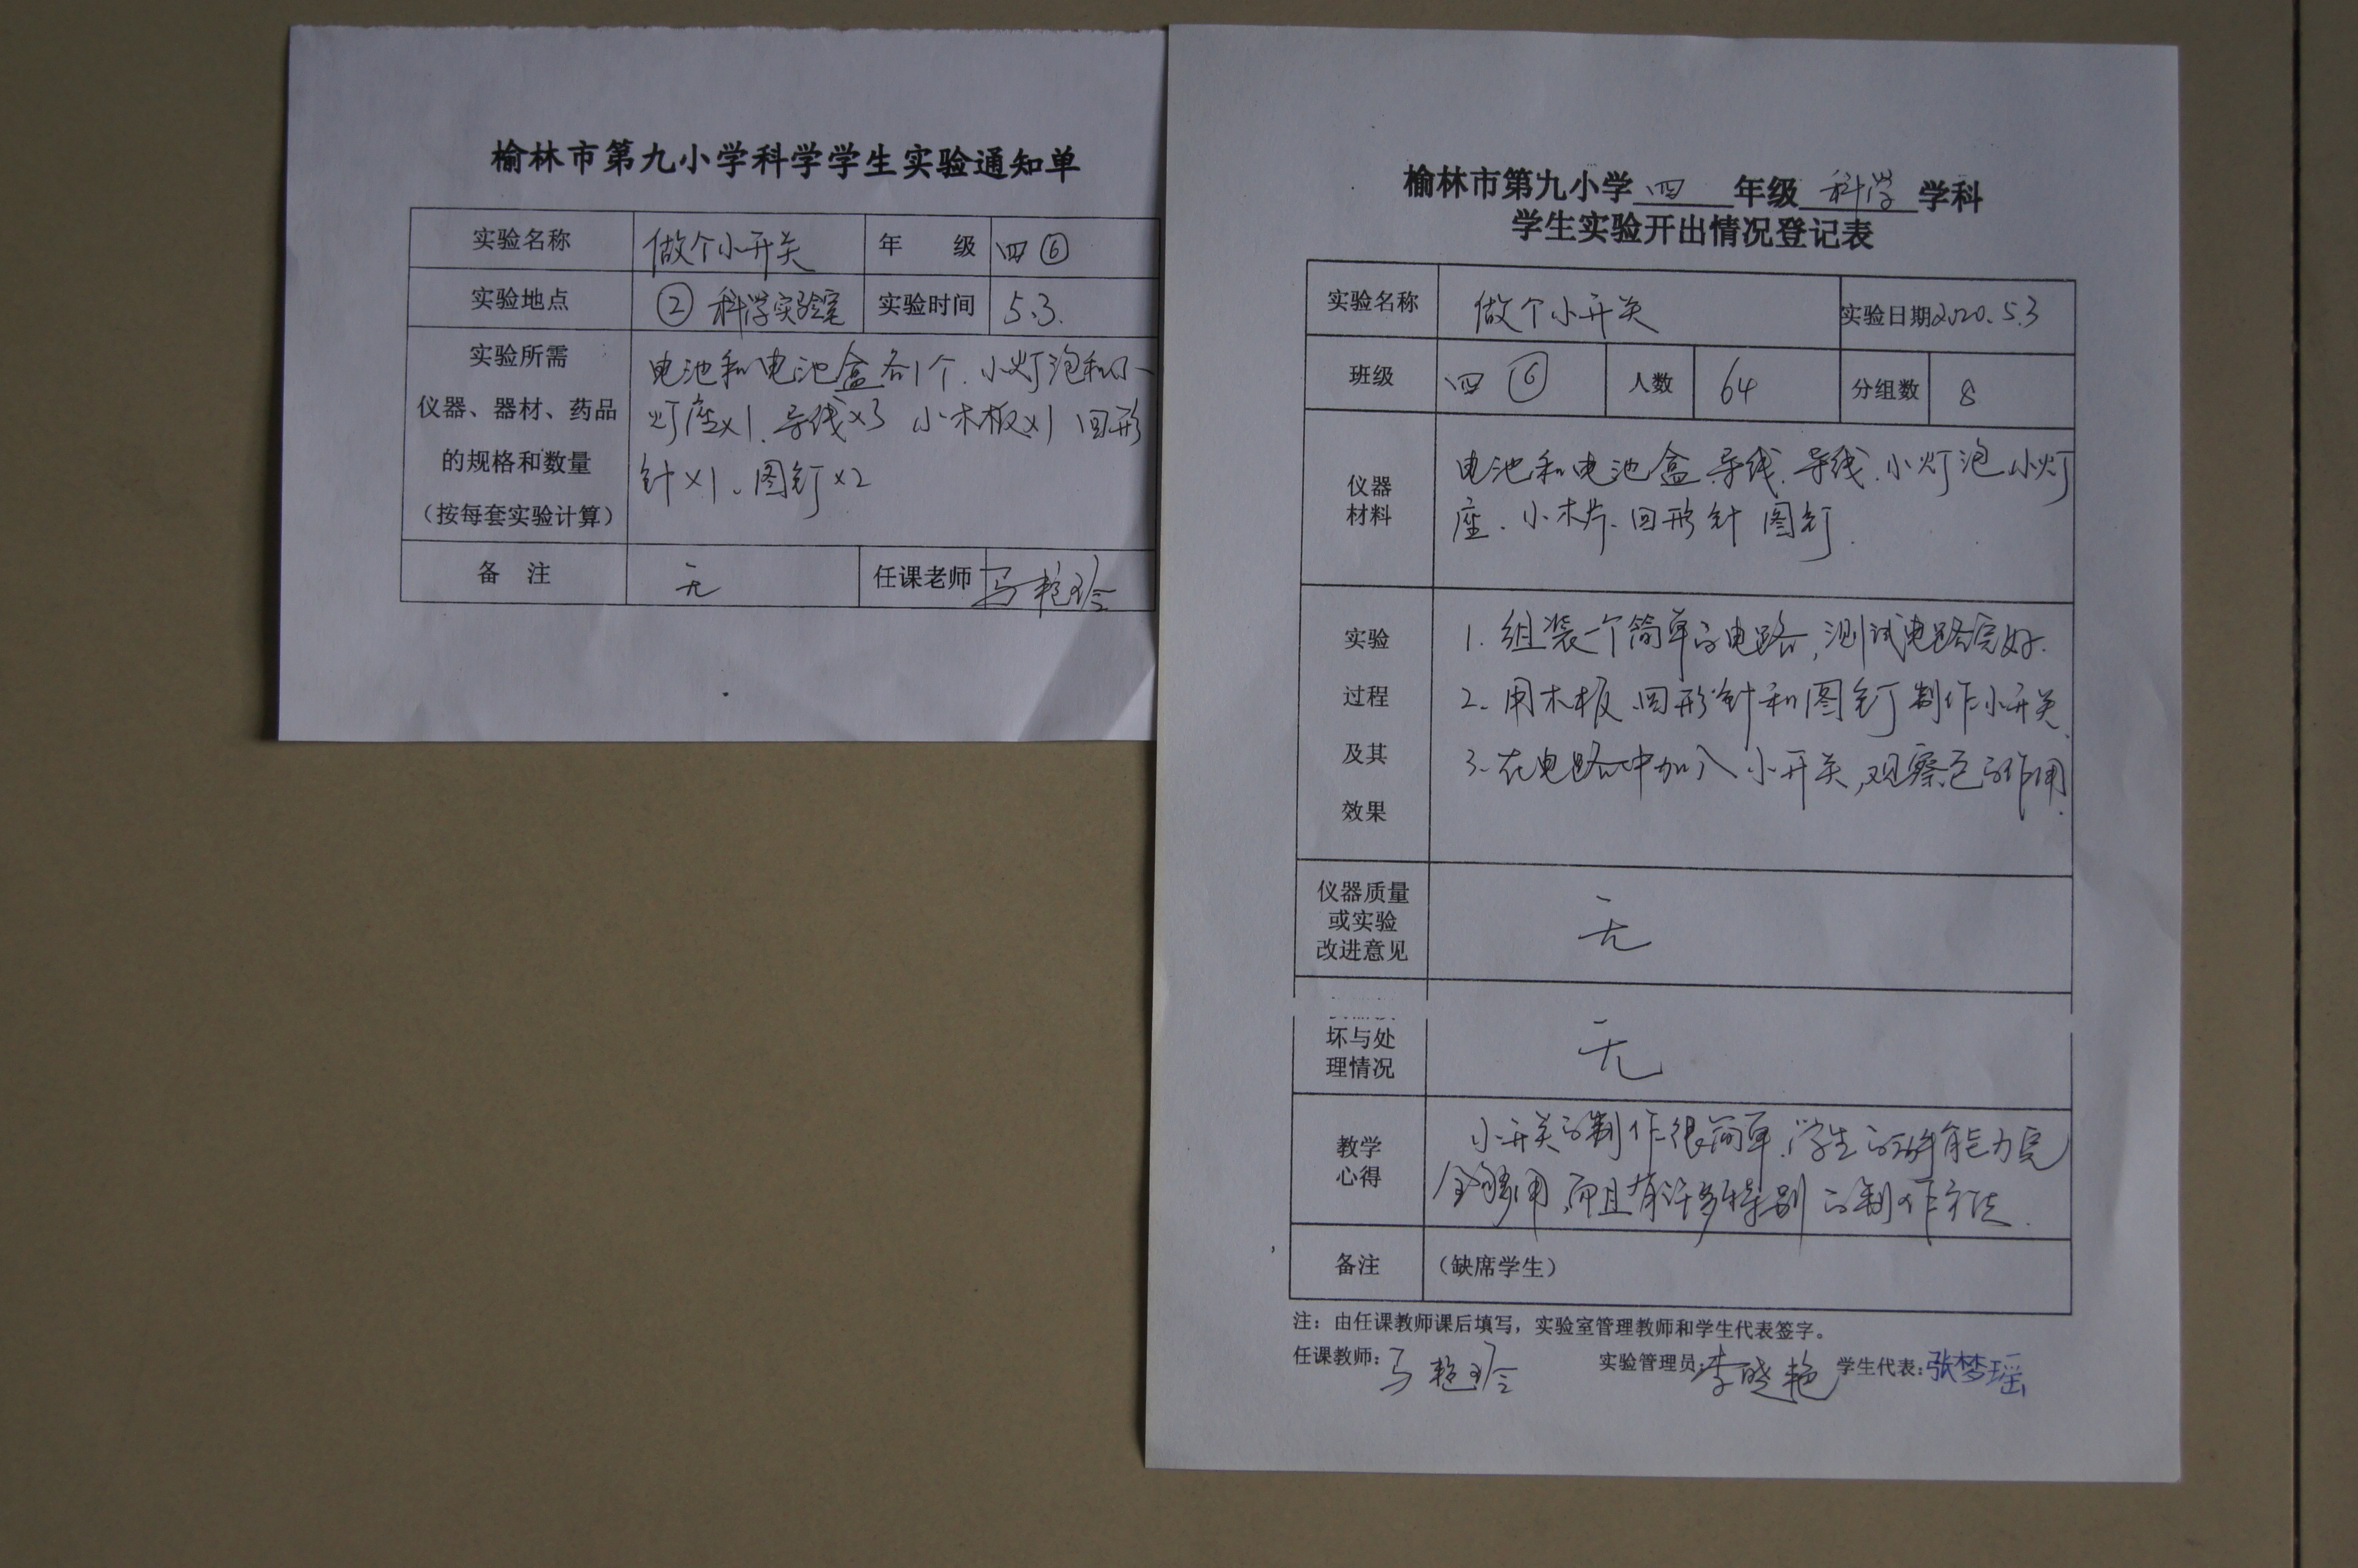 榆林市第九小学科学学生实验通知单
实验名称 做个小开关 年 级 四⑥
实验地点 ②科学实验室 实验时间 5.3.
实验所需
仪器、器材、药品
的规格和数量
（按每套实验计算）
电池和电池盒各1个.小灯泡和小
灯座×1、导线×3 小木板×1 回形
针×1、图钉×2
备 注 无 任课老师 马艳玲
榆林市第九小学 四 年级 科学 学科
学生实验开出情况登记表
实验名称 做个小开关 实验日期 2020.5.3
班级 四⑥ 人数 64 分组数 8
仪器
材料
电池和电池盒.导线.导线.小灯泡 小灯
座.小木片.回形针 图钉.
实验
过程
及其
效果
1.组装一个简单的电路,测试电路完好.
2.用木板.回形针和图钉制作小开关.
3.在电路中加入小开关,观察它的作用.
仪器质量
或实验
改进意见
无
坏与处
理情况
无
教学
心得
小开关的制作很简单.学生的动手能力完
全够用,而且有许多特别的制作方法.
备注 （缺席学生）
注：由任课教师课后填写，实验室管理教师和学生代表签字。
任课教师：马艳玲 实验管理员：李晓艳 学生代表：张梦瑶